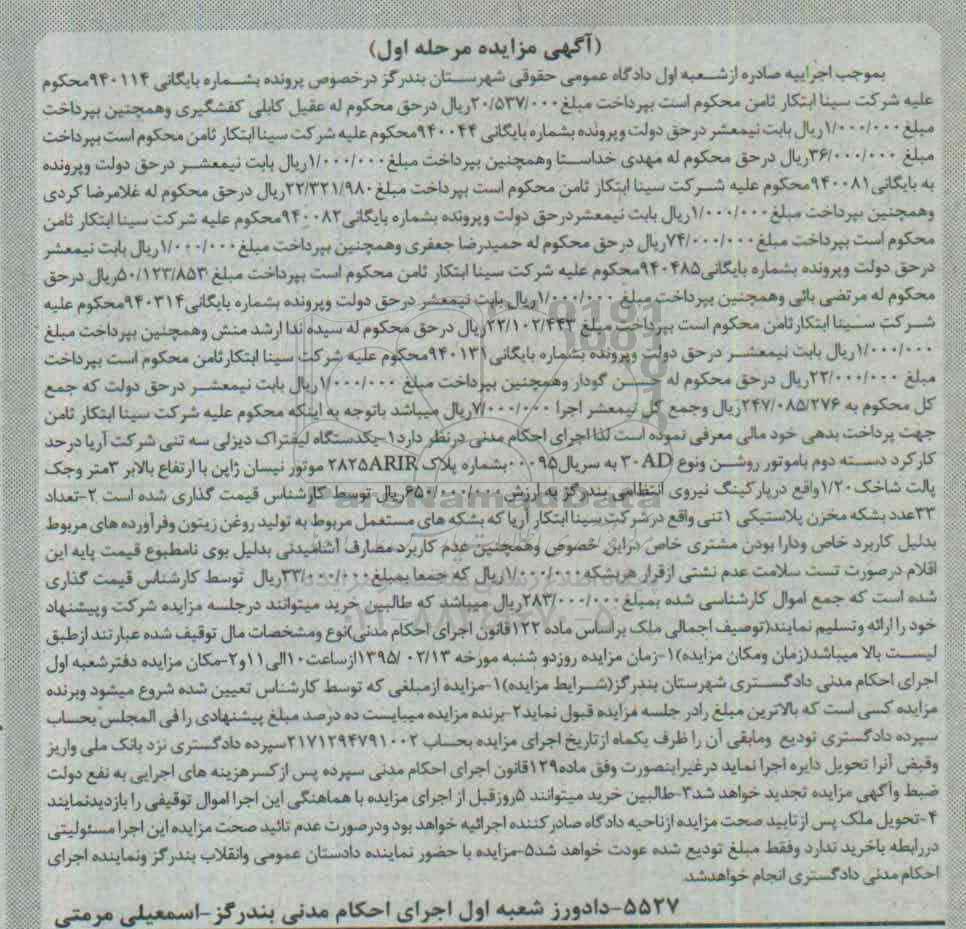 (آگهی مزایده مرحله اول)
بموجب اجراییه صادره ازشعبه اول دادگاه عمومی حقوقی شهرستان بندرگز درخصوص پرونده بشماره بایگانی ۹۴۰۱۱۴محکوم
علیه شرکت سینا ابتکار ثامن محکوم است بپرداخت مبلغ۲۰/۵۳۷/۰۰۰ریال درحق محکوم له عقیل کابلی کفشگیری وهمچنین بپرداخت
مبلغ ۱/۰۰۰/۰۰۰ریال بابت نیمعشر درحق دولت وپرونده بشماره بایگانی ۹۴۰۰۴۴محکوم علیه شرکت سینا ابتکار ثامن محکوم است بپرداخت
مبلغ ۳۶/۰۰۰/۰۰۰ریال درحق محکوم له مهدی خداستا وهمچنین بپرداخت مبلغ۱/۰۰۰/۰۰۰ریال بابت نیمعشر درحق دولت وپرونده
به بایگانی۹۴۰۰۸۱محکوم علیه شرکت سینا ابتکار ثامن محکوم است بپرداخت مبلغ۲۲/۳۲۱/۹۸۰ریال درحق محکوم له غلامرضا کردی
وهمچنین بپرداخت مبلغ۱/۰۰۰/۰۰۰ریال بابت نیمعشردرحق دولت وپرونده بشماره بایگانی۹۴۰۰۸۲محکوم علیه شرکت سینا ابتکار ثامن
محکوم است بپرداخت مبلغ۷۴/۰۰۰/۰۰۰ریال درحق محکوم له حمیدرضا جعفری وهمچنین بپرداخت مبلغ۱/۰۰۰/۰۰۰ریال بابت نیمعشر
درحق دولت وپرونده بشماره بایگانی۹۴۰۴۸۵محکوم علیه شرکت سینا ابتکار ثامن محکوم است بپرداخت مبلغ ۵۰/۱۲۳/۸۵۳ریال درحق
محکوم له مرتضی بائی وهمچنین بپرداخت مبلغ ۱/۰۰۰/۰۰۰ریال بابت نیمعشر درحق دولت وپرونده بشماره بایگانی۹۴۰۳۱۴محکوم علیه
شرکت سینا ابتکارثامن محکوم است بپرداخت مبلغ ۲۲/۱۰۲/۴۴۳ریال درحق محکوم له سیده ندا ارشد منش وهمچنین بپرداخت مبلغ
۱/۰۰۰/۰۰۰ریال بابت نیمعشر درحق دولت وپرونده بشماره بایگانی۹۴۰۱۳۱محکوم علیه شرکت سینا ابتکارثامن محکوم است بپرداخت
مبلغ ۲۲/۰۰۰/۰۰۰ریال درحق محکوم له حسن گودار وهمچنین بپرداخت مبلغ ۱/۰۰۰/۰۰۰ریال بابت نیمعشر درحق دولت که جمع
کل محکوم به ۲۴۷/۰۸۵/۲۷۶ریال وجمع کل نیمعشر اجرا ۷/۰۰۰/۰۰۰ریال میباشد باتوجه به اینکه محکوم علیه شرکت سینا ابتکار ثامن
جهت پرداخت بدهی خود مالی معرفی نموده است لذا اجرای احکام مدنی درنظر دارد۱-یکدستگاه لیفتراک دیزلی سه تنی شرکت آریا درحد
کارکرد دسته دوم باموتور روشن ونوع ۳۰AD به سریال۰۰۰۹۵بشماره پلاک ۲۸۲۵ARIR موتور نیسان ژاپن با ارتفاع بالابر ۳متر وجک
پالت شاخک۱/۲۰واقع درپارکینگ نیروی انتظامی بندرگز به ارزش ۲۵۰/۰۰۰/۰۰۰ریال توسط کارشناس قیمت گذاری شده است ۲-تعداد
۳۳عدد بشکه مخزن پلاستیکی ۱تنی واقع درشرکت سینا ابتکار آریا که بشکه های مستعمل مربوط به تولید روغن زیتون وفرآورده های مربوط
بدلیل کاربرد خاص ودارا بودن مشتری خاص دراین خصوص وهمچنین عدم کاربرد مصارف آشامیدنی بدلیل بوی نامطبوع قیمت پایه این
اقلام درصورت تست سلامت عدم نشتی ازقرار هربشکه۱/۰۰۰/۰۰۰ریال که جمعا بمبلغ۳۳/۰۰۰/۰۰۰ریال توسط کارشناس قیمت گذاری
شده است که جمع اموال کارشناسی شده بمبلغ۲۸۳/۰۰۰/۰۰۰ریال میباشد که طالبین خرید میتوانند درجلسه مزایده شرکت وپیشنهاد
خود را ارائه وتسلیم نمایند(توصیف اجمالی ملک براساس ماده ۱۲۲قانون اجرای احکام مدنی)نوع ومشخصات مال توقیف شده عبارتند ازطبق
لیست بالا میباشد(زمان ومکان مزایده)۱-زمان مزایده روزدو شنبه مورخه ۰۲/۱۳ /۱۳۹۵ازساعت۱۰الی۱۱و۲-مکان مزایده دفترشعبه اول
اجرای احکام مدنی دادگستری شهرستان بندرگز(شرایط مزایده)۱-مزایده ازمبلغی که توسط کارشناس تعیین شده شروع میشود وبرنده
مزایده کسی است که بالاترین مبلغ رادر جلسه مزایده قبول نماید۲-برنده مزایده میبایست ده درصد مبلغ پیشنهادی را فی المجلس بحساب
سپرده دادگستری تودیع ومابقی آن را ظرف یکماه ازتاریخ اجرای مزایده بحساب ۲۱۷۱۲۹۴۷۹۱۰۰۲سپرده دادگستری نزد بانک ملی واریز
وقبض آنرا تحویل دایره اجرا نماید درغیراینصورت وفق ماده۱۲۹قانون اجرای احکام مدنی سپرده پس ازکسرهزینه های اجرایی به نفع دولت
ضبط وآگهی مزایده تجدید خواهد شد۳-طالبین خرید میتوانند ۵روزقبل از اجرای مزایده با هماهنگی این اجرا اموال توقیفی را بازدیدنمایند
۴-تحویل ملک پس ازتایید صحت مزایده ازناحیه دادگاه صادرکننده اجرائیه خواهد بود ودرصورت عدم تائید صحت مزایده این اجرا مسئولیتی
دررابطه باخرید ندارد وفقط مبلغ تودیع شده عودت خواهد شد۵-مزایده با حضور نماینده دادستان عمومی وانقلاب بندرگز ونماینده اجرای
احکام مدنی دادگستری انجام خواهدشد.
۵۵۲۷-دادورز شعبه اول اجرای احکام مدنی بندرگز-اسمعیلی مرمتی
ParsNamadData